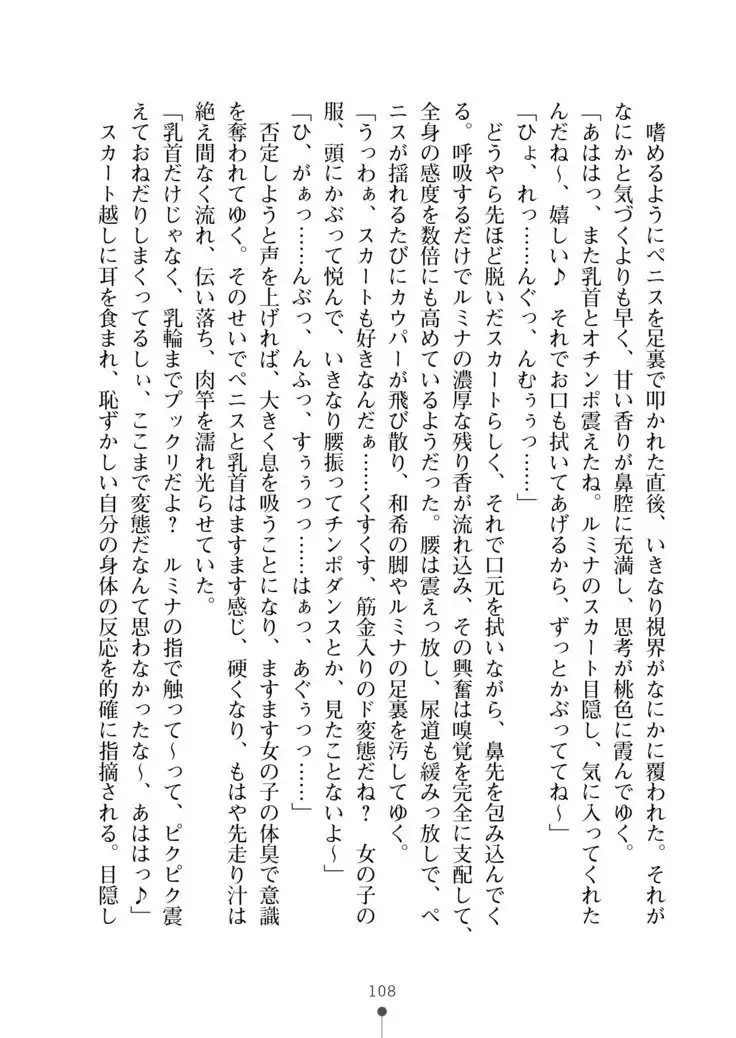 嗜めるようにペニスを足裏で叩かれた直後、いきなり視界がなにかに覆われた。それが
なにかと気づくよりも早く、甘い香りが鼻腔に充満し、思考が桃色に霞んでゆく。
「あははっ、また乳首とオチンポ震えたね。ルミナのスカート目隠し、気に入ってくれた
んだね〜、嬉しい♪　それでお口も拭いてあげるから、ずっとかぶっててね〜」
「ひょ、れっ……んぐっ、んむぅぅっ……」
どうやら先ほど脱いだスカートらしく、それで口元を拭いながら、鼻先を包み込んでく
る。呼吸するだけでルミナの濃厚な残り香が流れ込み、その興奮は嗅覚を完全に支配して、
全身の感度を数倍にも高めているようだった。腰は震えっ放し、尿道も緩みっ放しで、ペ
ニスが揺れるたびにカウパーが飛び散り、和希の脚やルミナの足裏を汚してゆく。
「うっわぁ、スカートも好きなんだぁ……くすくす、筋金入りのド変態だね？　女の子の
服、頭にかぶって悦んで、いきなり腰振ってチンポダンスとか、見たことないよ〜」
「ひ、がぁっ……んぶっ、んふっ、すぅぅっっ……はぁっ、あぐぅっっ……」
否定しようと声を上げれば、大きく息を吸うことになり、ますます女の子の体臭で意識
を奪われてゆく。そのせいでペニスと乳首はますます感じ、硬くなり、もはや先走り汁は
絶え間なく流れ、伝い落ち、肉竿を濡れ光らせていた。
「乳首だけじゃなく、乳輪までプックリだよ？　ルミナの指で触って〜って、ピクピク震
えておねだりしまくってるしぃ、ここまで変態だなんて思わなかったな〜、あははっ♪」
スカート越しに耳を食まれ、恥ずかしい自分の身体の反応を的確に指摘される。目隠し
108